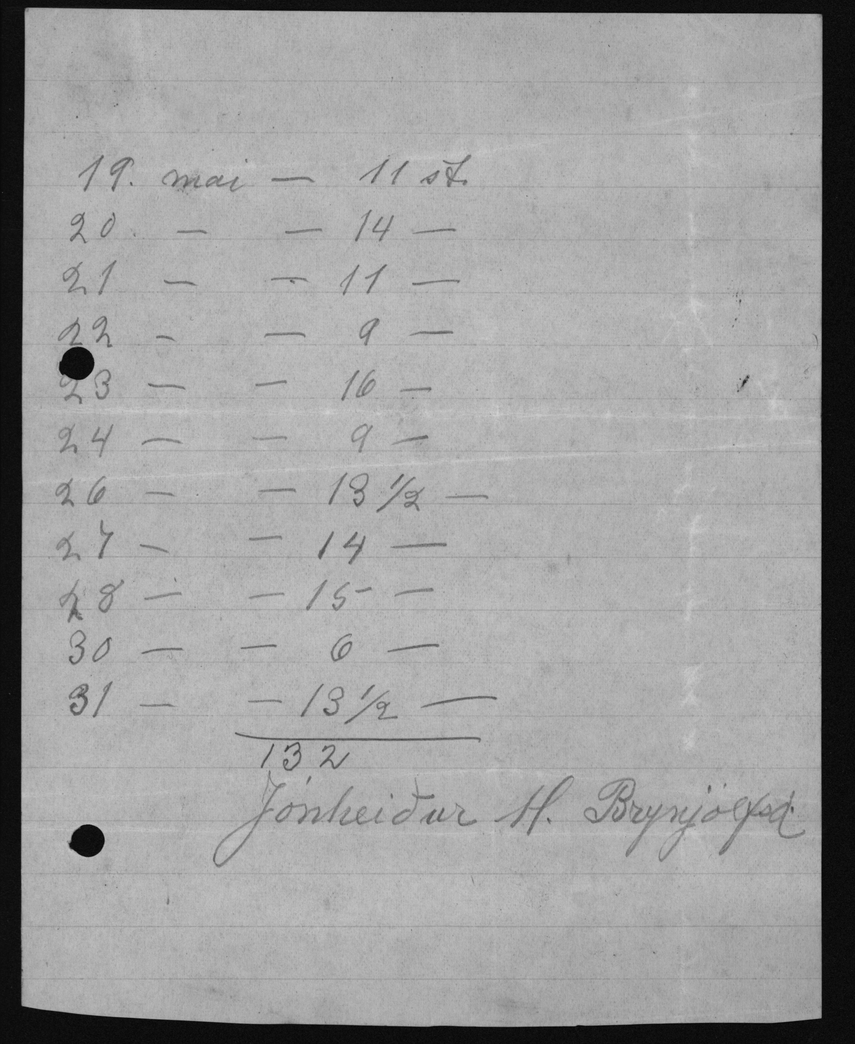 19. mai — 11 st.
20. — — 14 —
21 — — 11 —
22 — — 9 —
23 — — 16 —
24 — — 9 —
26 — — 13 1/2 —
27 — — 14 —
28 — — 15 —
30 — — 6 —
31 — — 13 1/2 —
132
Jónheiður H. Brynjólfsd.